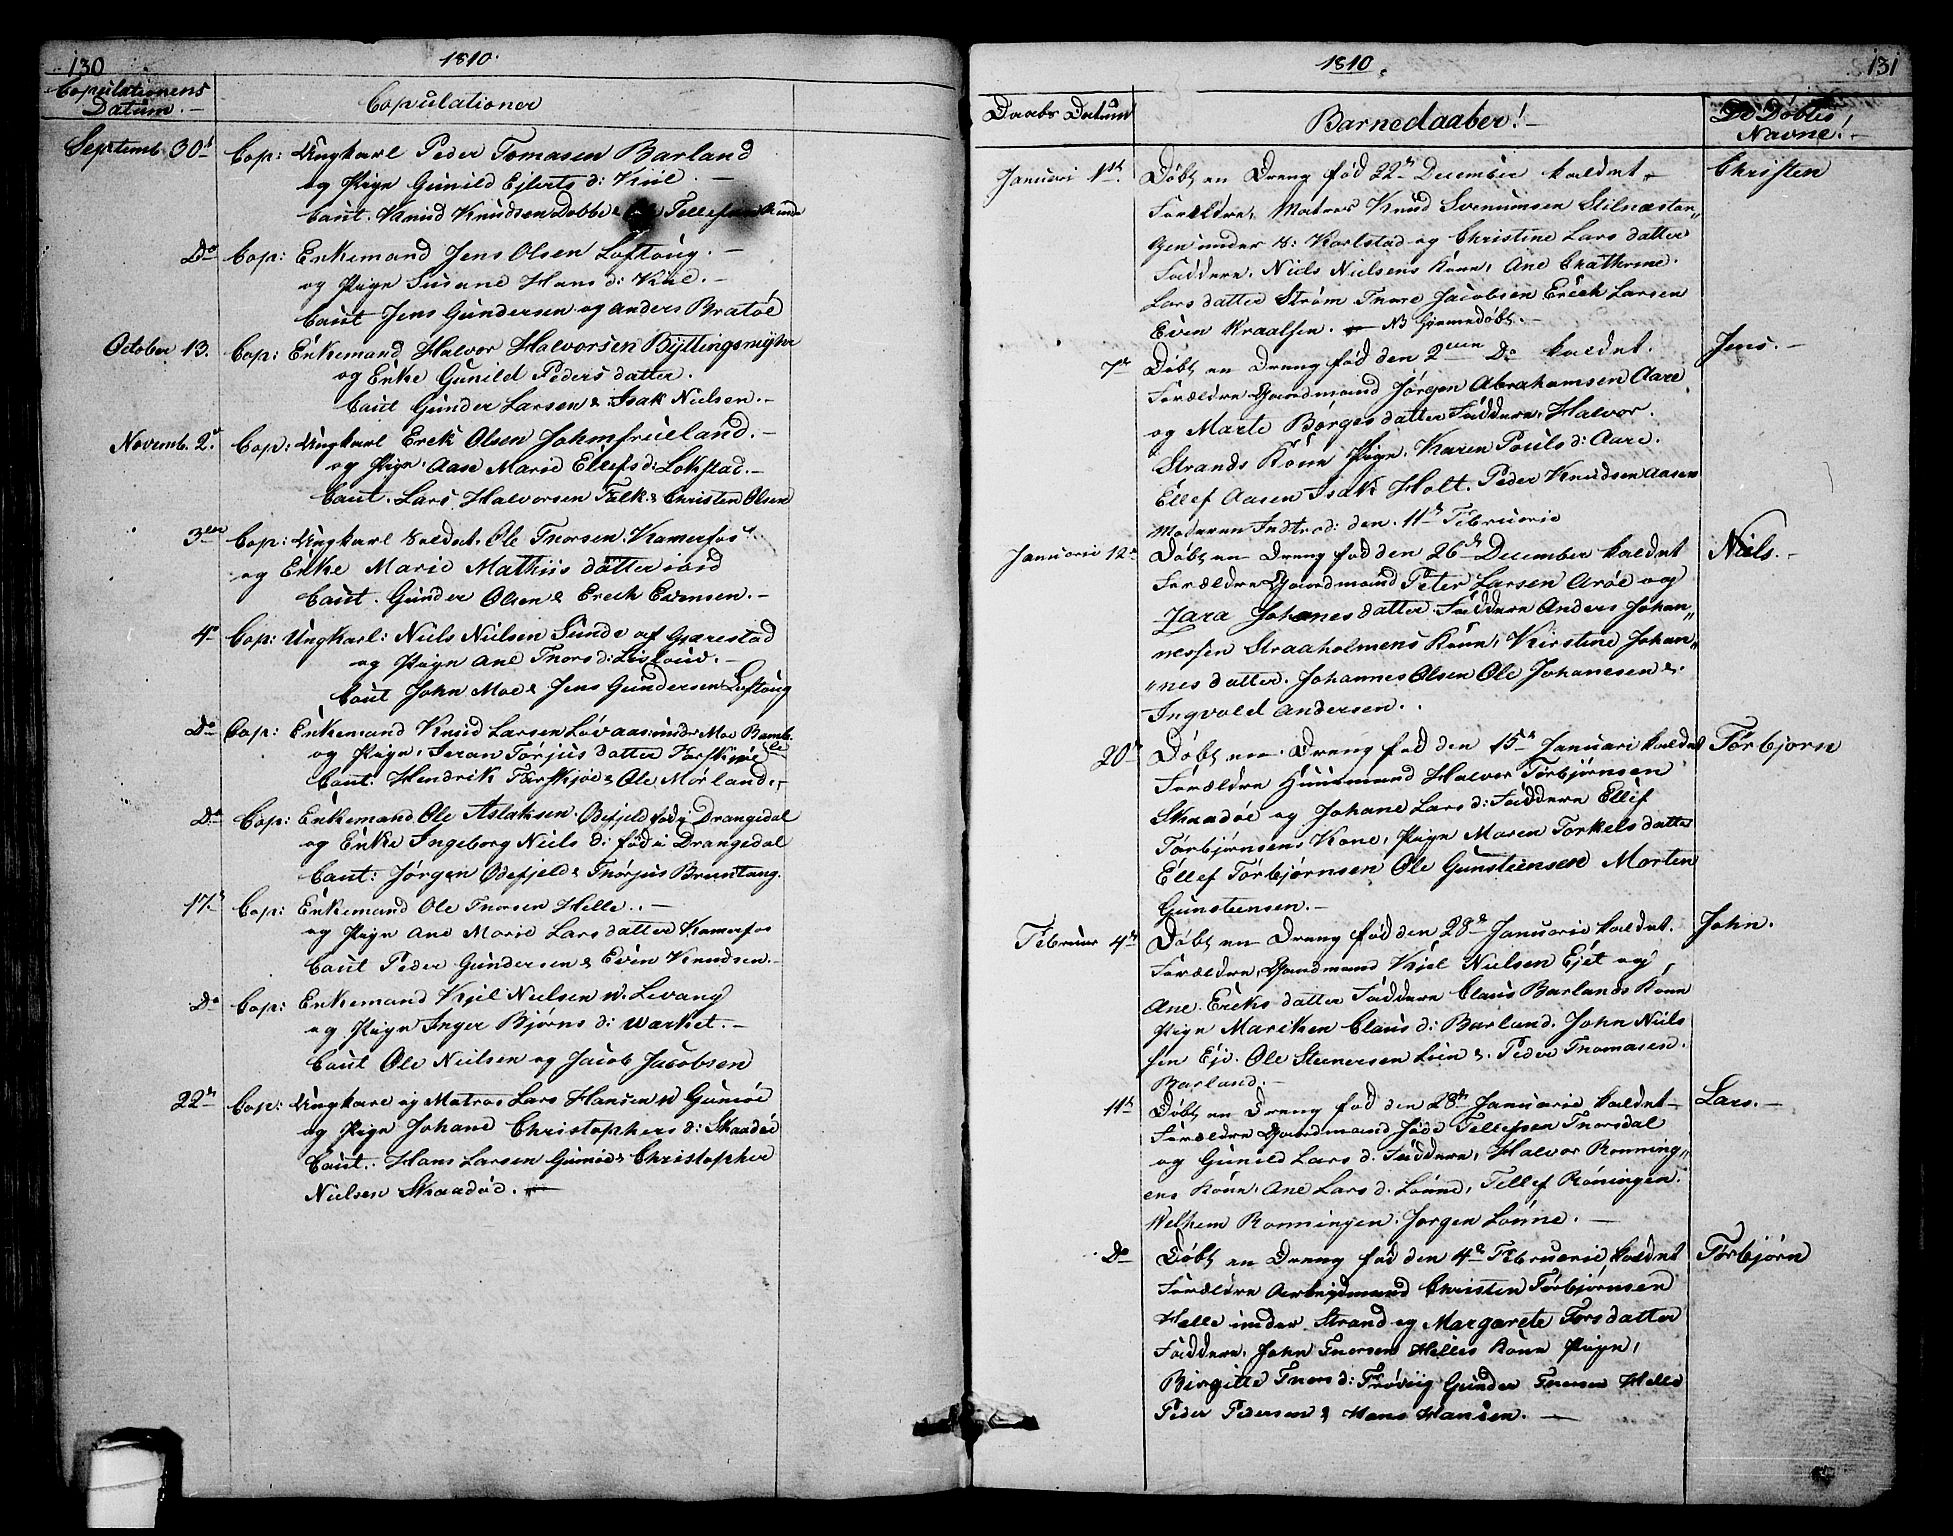 130
1810.
Copulationens
Datum. —
Copulationer
Septemb. 30t
Cop: Ungkarl Peder Tomasen Barland
og Pign Gunild Ejlerts d: Kiil. —
Caut. Knud Knudsen Dobbe & Tellef
Do
Cop: Enkemand Jens Olsen Loftoug. —
og Pign Susane Hans d: Kiil. —
Caut Jens Gundersen og Anders Bratøe
October 13.
Cop: Enkemand Halvor Halvorsen Byttingsmyhr
og Enke Gunild Peders datter.
Caut Gunder Larsen & Isak Nielsen. —
Novemb. 2
Cop: Ungkarl Erek Olsen Johmfrueland. —
og Pign Aase Marie Ellefs d: Lokstad. —
Caut. Lars Halvorsen Falk & Christen Olsen
3
Cop: Ungkarl Soldat. Ole Thorsen Kamerfos
og Enke Marie Mathiis datter ibid
Caut. Gunder Olsen & Erech Evensen. —
4
Cop: Ungkarl: Niels Nielsen Sunde af Gjærestad
og Pign Ane Thors d:
Caut John Moe & Jens Gundersen Loftoug
Do
Cop: Enkemand Knud Larsen Løvaas under Moe Bamb
le
og Pign, Seran Torjus datter Farskjøe
Caut: Hendrik Farskjøe & Ole Mørland. —
Do
Cop: Enkemand Ole Aslaksen Ødefjeld fød i Drangedal
og Enke Ingeborg Niels d: fød i Drangedal
Caut: Jørgen Ødefjeld & Thorjus Bruntang.
17
Cop: Enkemand Ole Thorsen Helle. . —
og Pign Ane Marie Lars datter Kamerfos
Caut Peder Gundersen & Even Knudsen. —
Do
Cop: Enkemand Kjel Nielsen N. Levang
og Pign Inger Bjørns d: Wærket. —
Caut Ole Nielsen og Jacob Jacobsen
22
Cop: Ungkarl og Matros Lars Hansen N Gumøe
og Pign Johane Christophers d: Skaadøe
Caut.: Hans Larsen Gumøe & Christopher
Nielsen Skaadøe. —
1810.
131
Daabs Datum
Barnedaaber! —
De Døbtes
Navne! —
Januari 1st.
Døbt en Dreng fød 22 December kaldet —
Christen
Forældre, Matros Knud Svenumsen Stilnæstan"
gen under S: Karlstad og Christine Lars datter
Faddere, Niels Nielsens Kone, Ane Chathrine
Lars datter Strøm Thore Jacobsen Erich Larsen
Even Kraalsen. — NB Hjemedøbt. —
7
Døbt en Dreng fød den 2den Do kaldet.
Jens. —
Forældre Gaardmand Jørgen Abrahamsen Aare
og Marte Børges datter Faddere, Halvor.
Strands Kone Pign Karen Pouls d: Aare.
Ellef Aasen Isak Holt. Peder Knudsen Aasen
Moderen Indtrod: den 11 Februarie
Januarie 12
Døbt en Dreng fød den 26 December kaldet
Niels. —
Forældre Gaardmand Peter Larsen Arøe og
Zara Johanes datter Faddere Anders Johan"
nessen Straaholmens Kone, Kirstine Johan"
"nes datter. Johannes Olsen Ole Johanesen &
Ingvold Andersen. .
20
Døbt en Dreng fød den 15 Januari kaldet
Torbjorn
Forældre Huusmand Halvor Torbjørnsen
Skaadøe og Johane Lars d: Faddere Ellef
Torbjørnsens Kone, Pign Maren Torkels datter
Ellef Torbjørnsen Ole Gunsteensen Morten
Gunsteensen. —
Februar 4
Døbt en Dreng fød den 28 Januarie kaldet.
John.
Forældre, Gaardmand Kjel Nielsen Ejet og
Ane Ereks datter Faddere Claus Barlands Kone
Pign Mariken Claus d: Barland. John Niels
sen Eje. Ole Steenersen Lien & Peder Thomasen.
Barland. —
11
Døbt en Dreng fød den 28 Januarie kaldet —
Lars. —
Forældre Gaardmand Tellefsen Thorsdal
og Gunild Lars d. Faddere, Halvor Ronning"
ens Kone Ane Lars d. Lønne, Tellef Røningen.
Welhem Ronningen. Jorgen Lonne. —
Do
Døbt en Dreng fød den 4 Februarie kaldet
Torbjørn
Forældre Arbeidmand Christen Torbjørnsen
Helle under Strand og Margarete Tors datter
Faddere, John Thorsen Helles Kone Pign,
Birgitte Thors d: Frøviig Gunder Thorsen Helle
Peder Pedersen & Hans Hansen. —